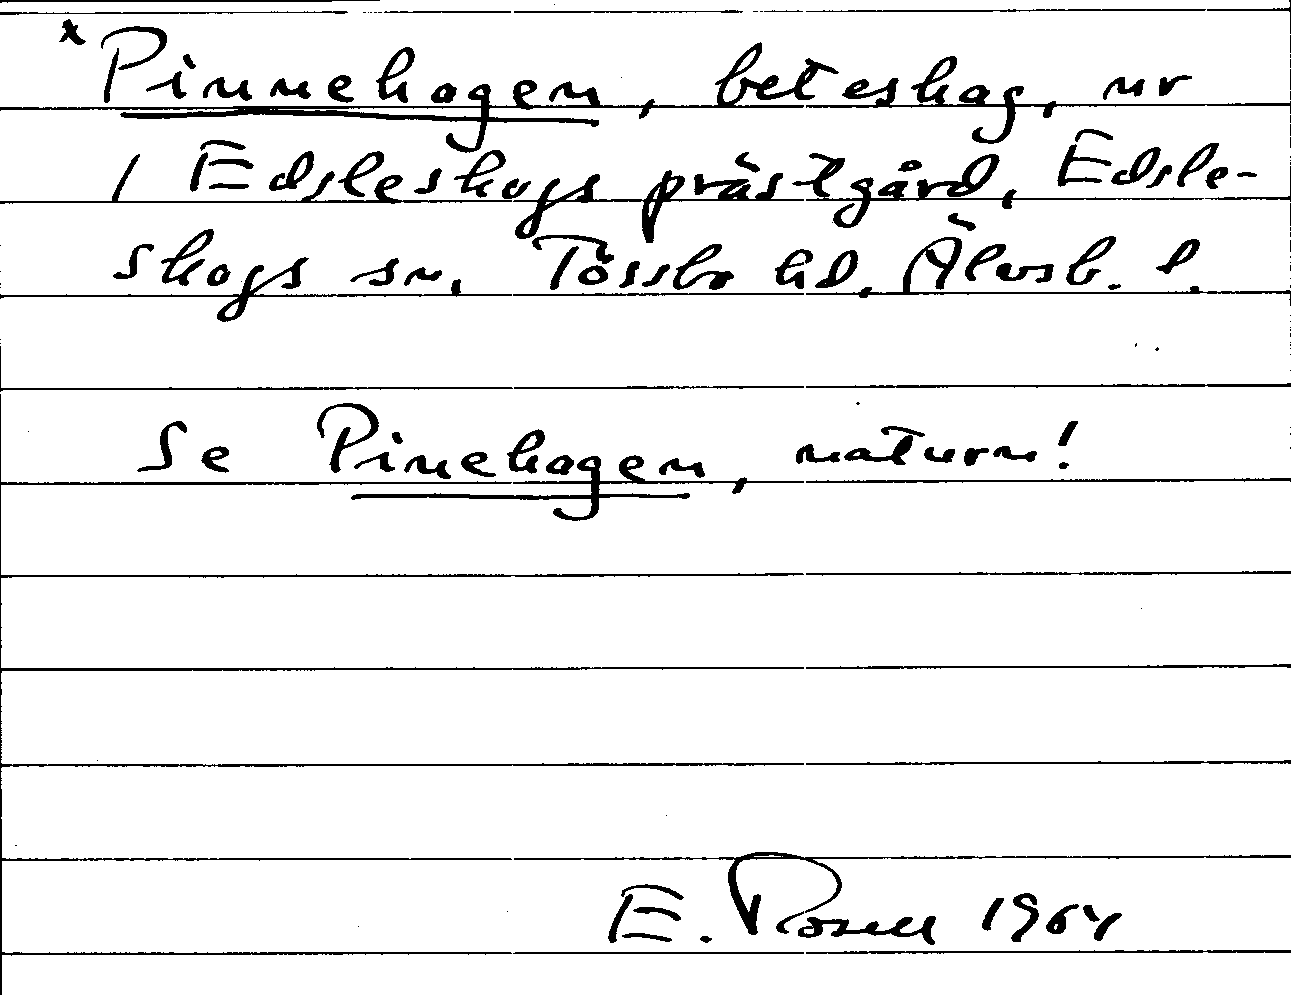 x Pinnehagen, beteshag, nr
1 Edsleskogs prästgård, Edsle-
skogs sn, Tössbo hd, Älvsb. l.
Se Pinehagen, naturn!
E. Rosell 1964